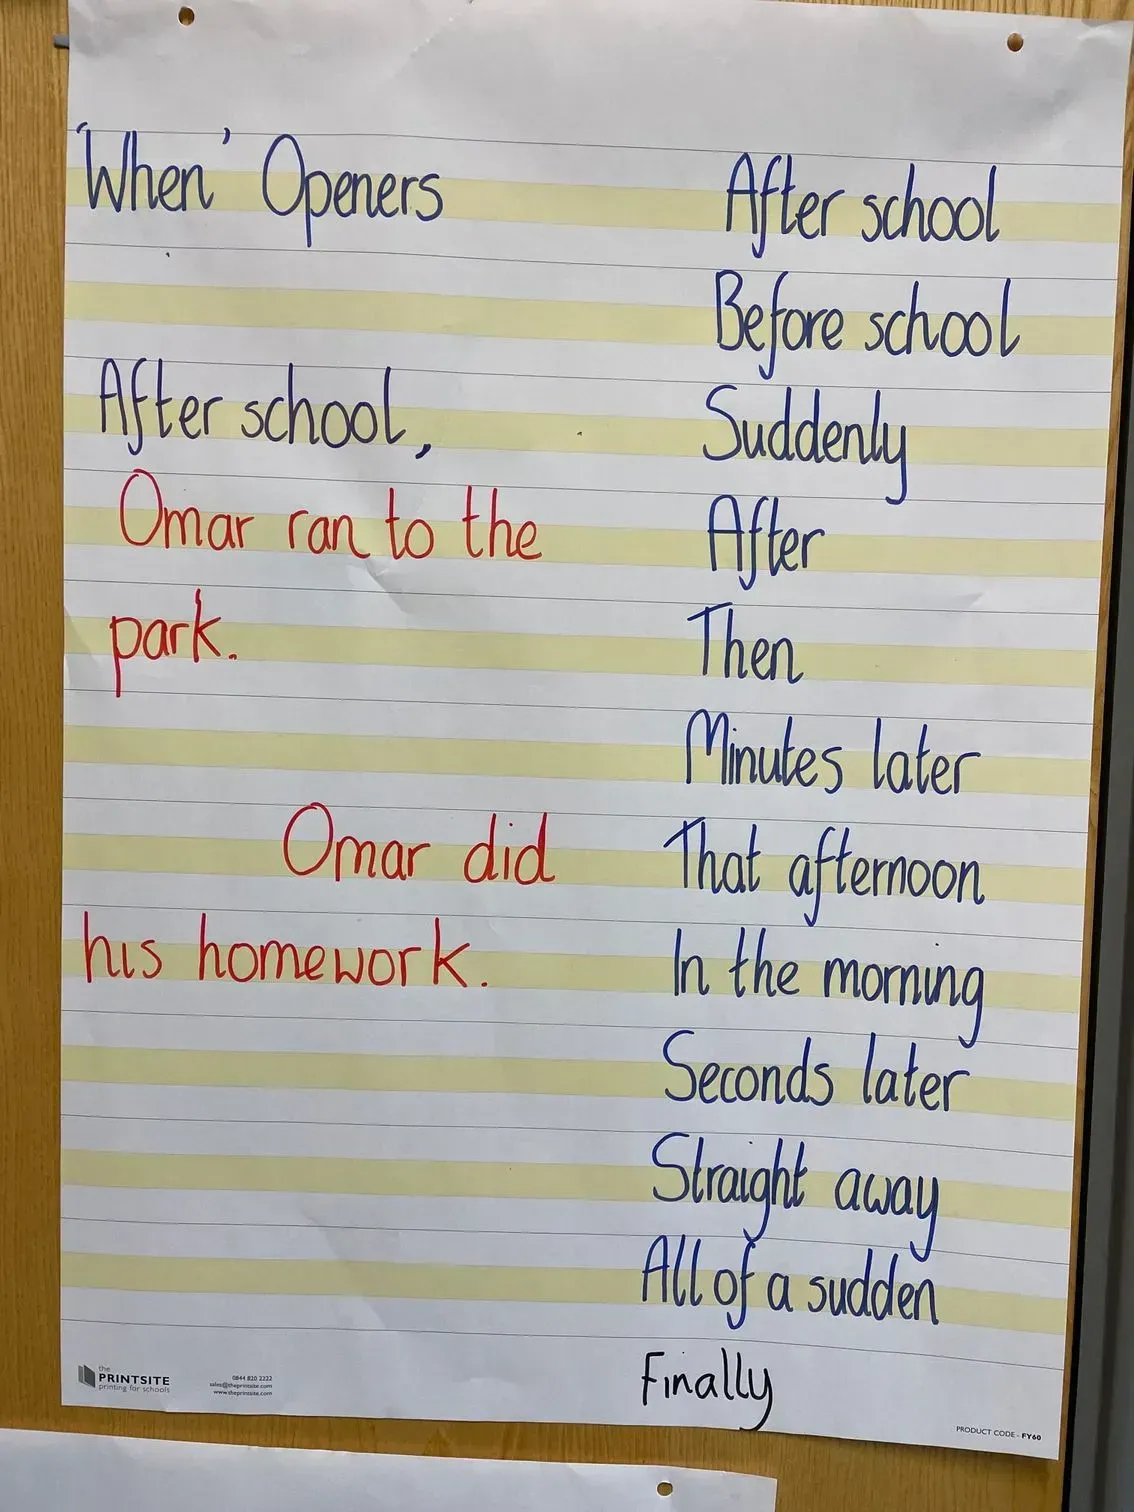 'When' Openers
After school,
Omar ran to the
park.
Omar did
his homework.
After school
Before school
Suddenly
After
Then
Minutes later
That afternoon
In the morning
Seconds later
Straight away
All of a sudden
Finally
the
PRINTSITE
printing for schools
0844 820 2222
sales@theprintsite.com
www.theprintsite.com
PRODUCT CODE - FY60